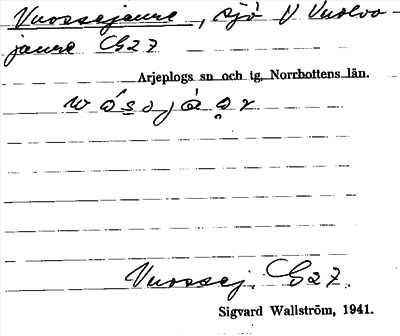 Vuossejaure, sjö V Vuolvo-
jaure G27
Arjeplogs sn och tg, Norrbottens län.
Vuossej. G27.
Sigvard Wallström, 1941.